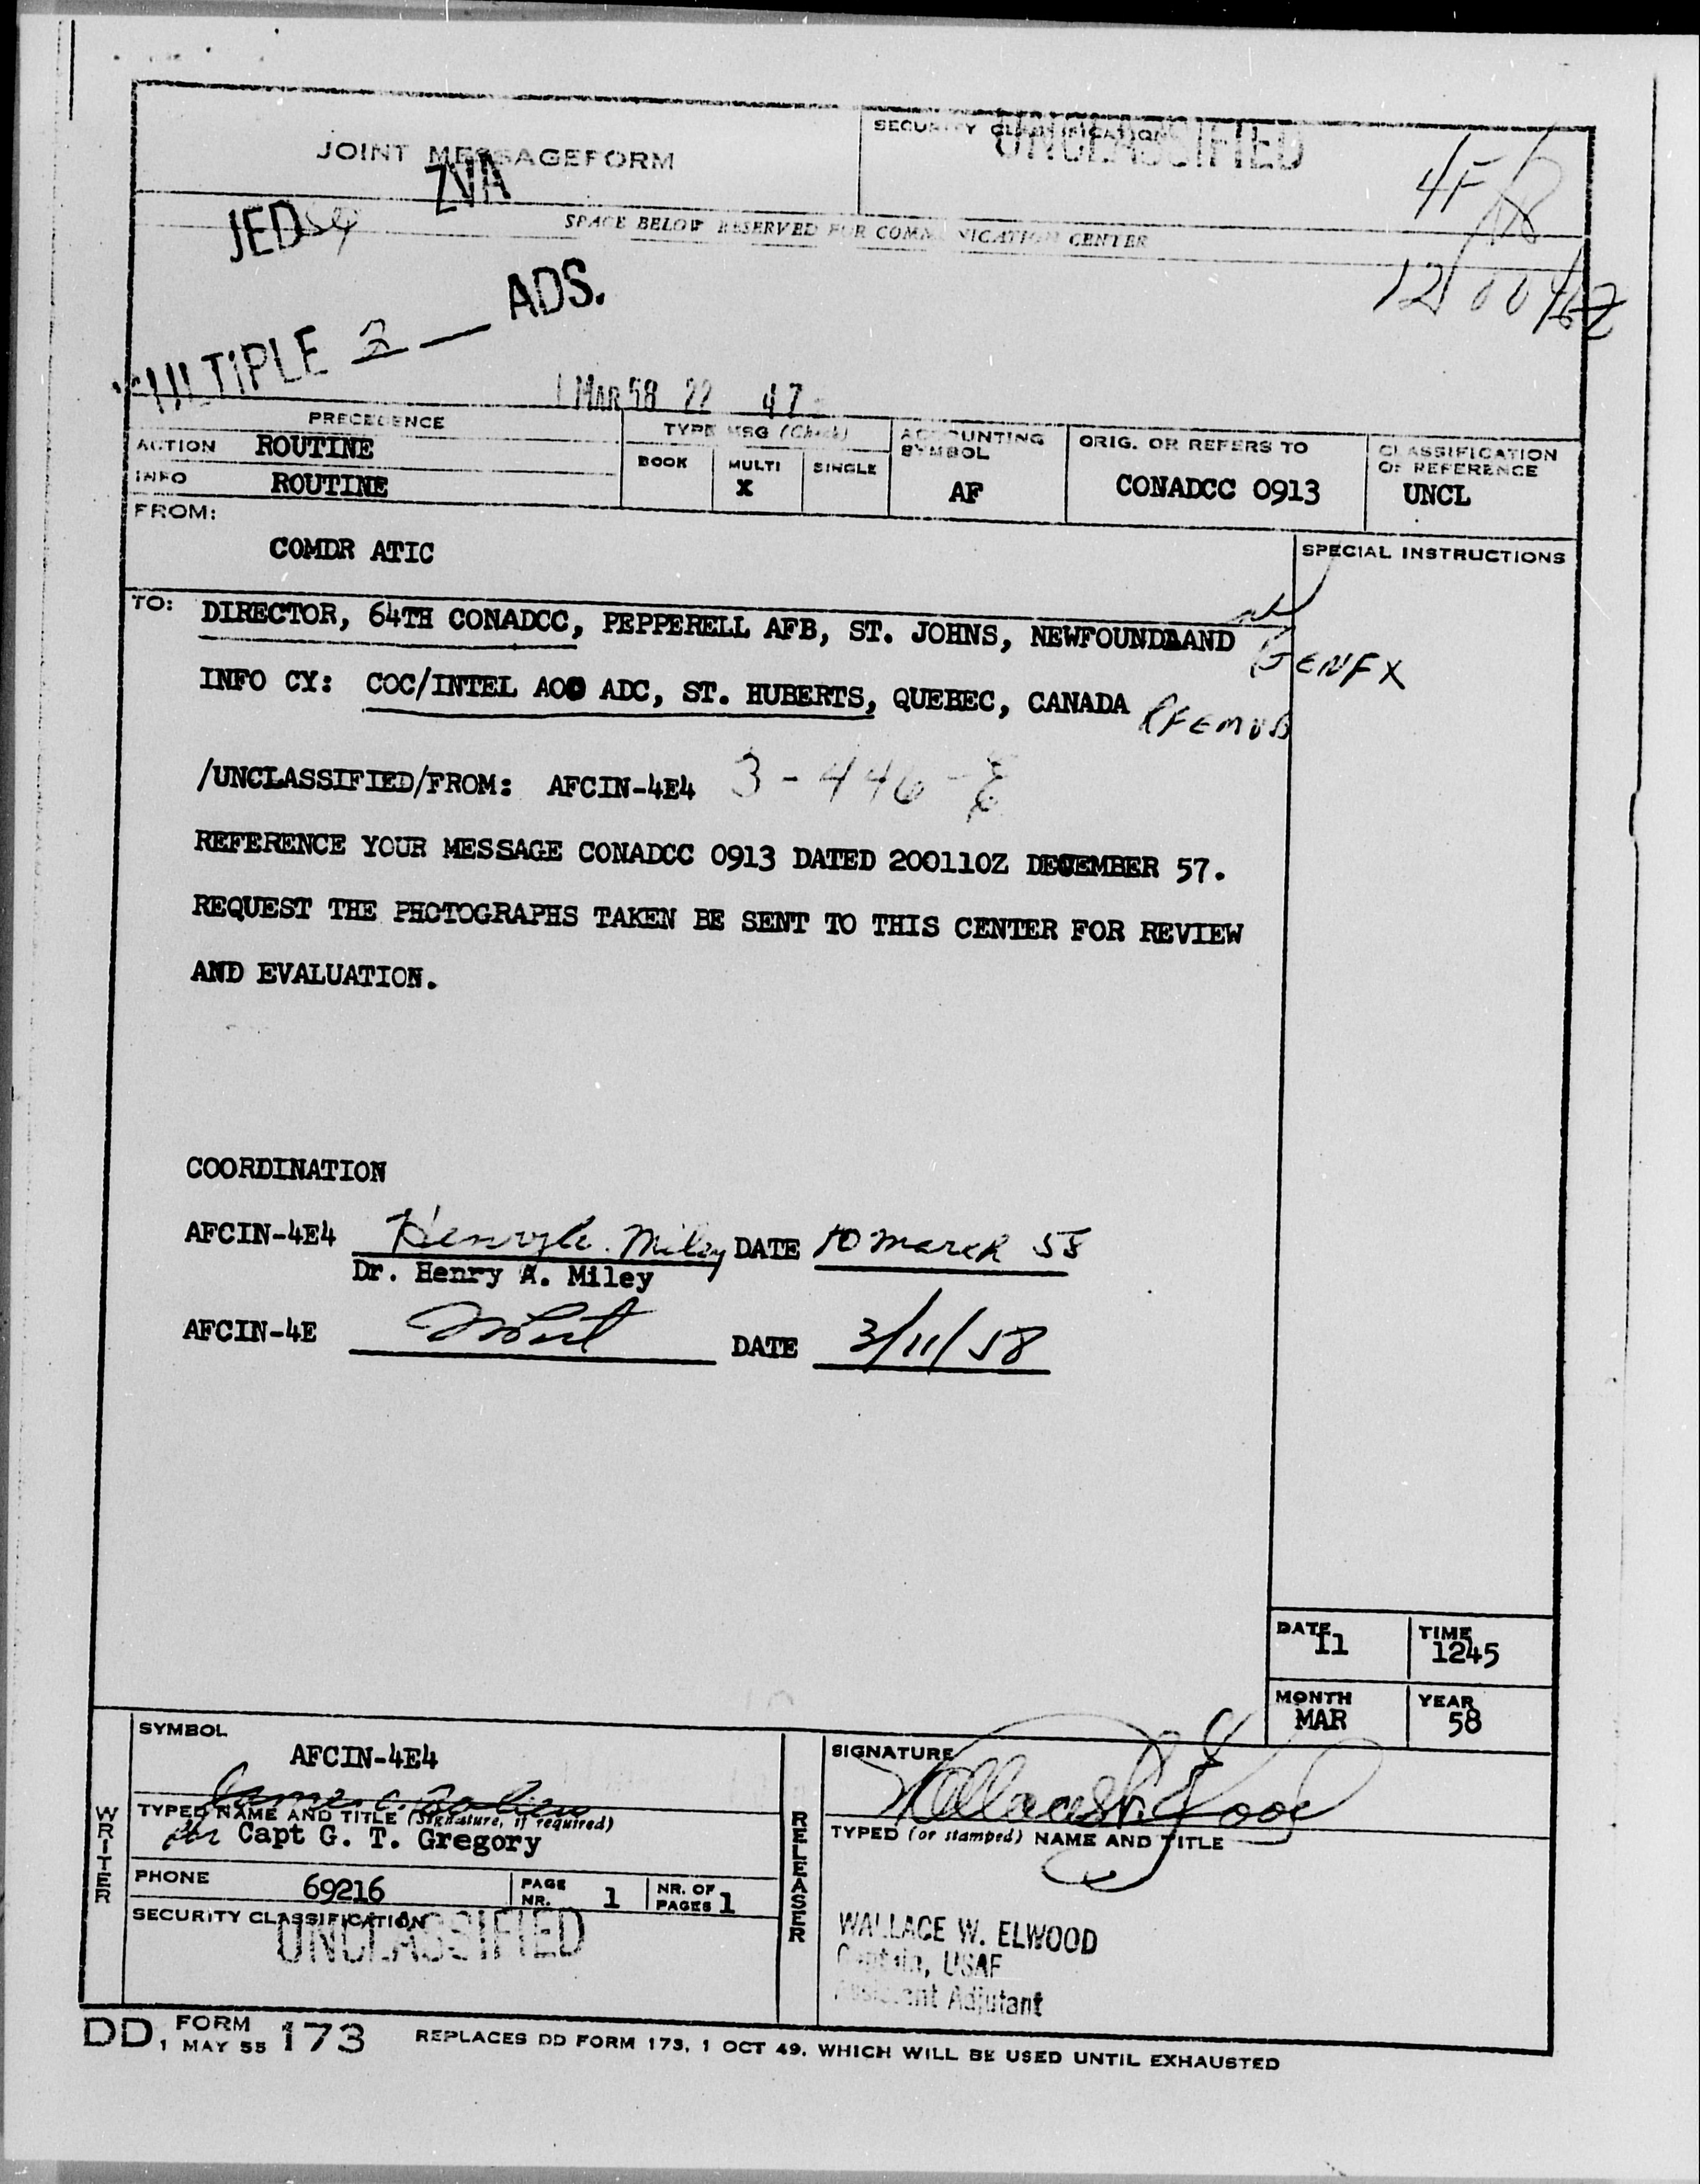 JOINT MESSAGEFORM
SECURITY CLASSIFICATION
UNCLASSIFIED
ZVA
JED
SPACE BELOW RESERVED FOR COMMUNICATION CENTER
ADS.
MULTIPLE 2
MAR 58 22 47
PRECEDENCE
TYPE MSG (Check)
ACCOUNTING SYMBOL
ORIG. OR REFERS TO
CLASSIFICATION OF REFERENCE
ACTION ROUTINE
BOOK MULTI SINGLE
INFO ROUTINE
X AF CONADCC 0913 UNCL
FROM:
COMDR ATIC
SPECIAL INSTRUCTIONS
TO: DIRECTOR, 64TH CONADCC, PEPPERELL AFB, ST. JOHNS, NEWFOUNDLAND
INFO CY: COC/INTEL AOC ADC, ST. HUBERTS, QUEBEC, CANADA
/UNCLASSIFIED/FROM: AFCIN-4E4 3-446-E
REFERENCE YOUR MESSAGE CONADCC 0913 DATED 200110Z DECEMBER 57.
REQUEST THE PHOTOGRAPHS TAKEN BE SENT TO THIS CENTER FOR REVIEW
AND EVALUATION.
COORDINATION
AFCIN-4E4 Henry A. Miley DATE 10 March 58
Dr. Henry A. Miley
AFCIN-4E DATE 3/11/58
DATE 11 TIME 1245
MONTH MAR YEAR 58
WRITER
SYMBOL
AFCIN-4E4
TYPED NAME AND TITLE (Signature, if required)
for Capt G. T. Gregory
PHONE 69216 PAGE NR. 1 NR. OF PAGES 1
SECURITY CLASSIFICATION
UNCLASSIFIED
RELEASER
SIGNATURE
TYPED (or stamped) NAME AND TITLE
WALLACE W. ELWOOD
Captain, USAF
Assistant Adjutant
DD FORM 1 MAY 55 173 REPLACES DD FORM 173, 1 OCT 49, WHICH WILL BE USED UNTIL EXHAUSTED